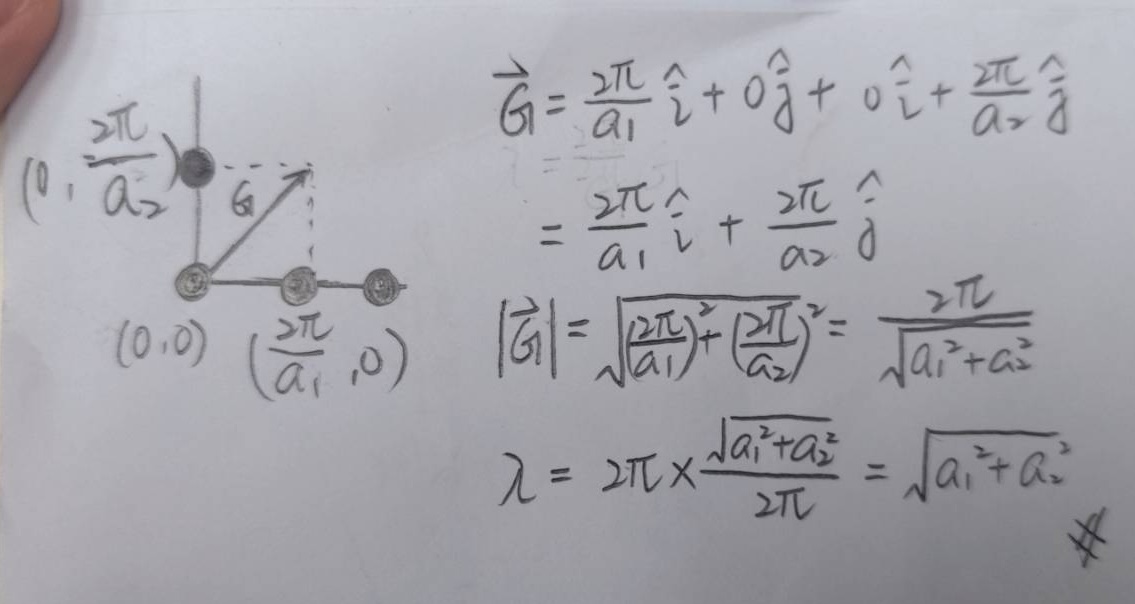 (0, 2π/a₂)
G
(0,0) (2π/a₁,0)
G⃗ = 2π/a₁ î + 0ĵ + 0î + 2π/a₂ ĵ
= 2π/a₁ î + 2π/a₂ ĵ
|G⃗| = √((2π/a₁)²+(2π/a₂)²) = 2π/√(a₁²+a₂²)
λ = 2π × √(a₁²+a₂²)/2π = √(a₁²+a₂²)